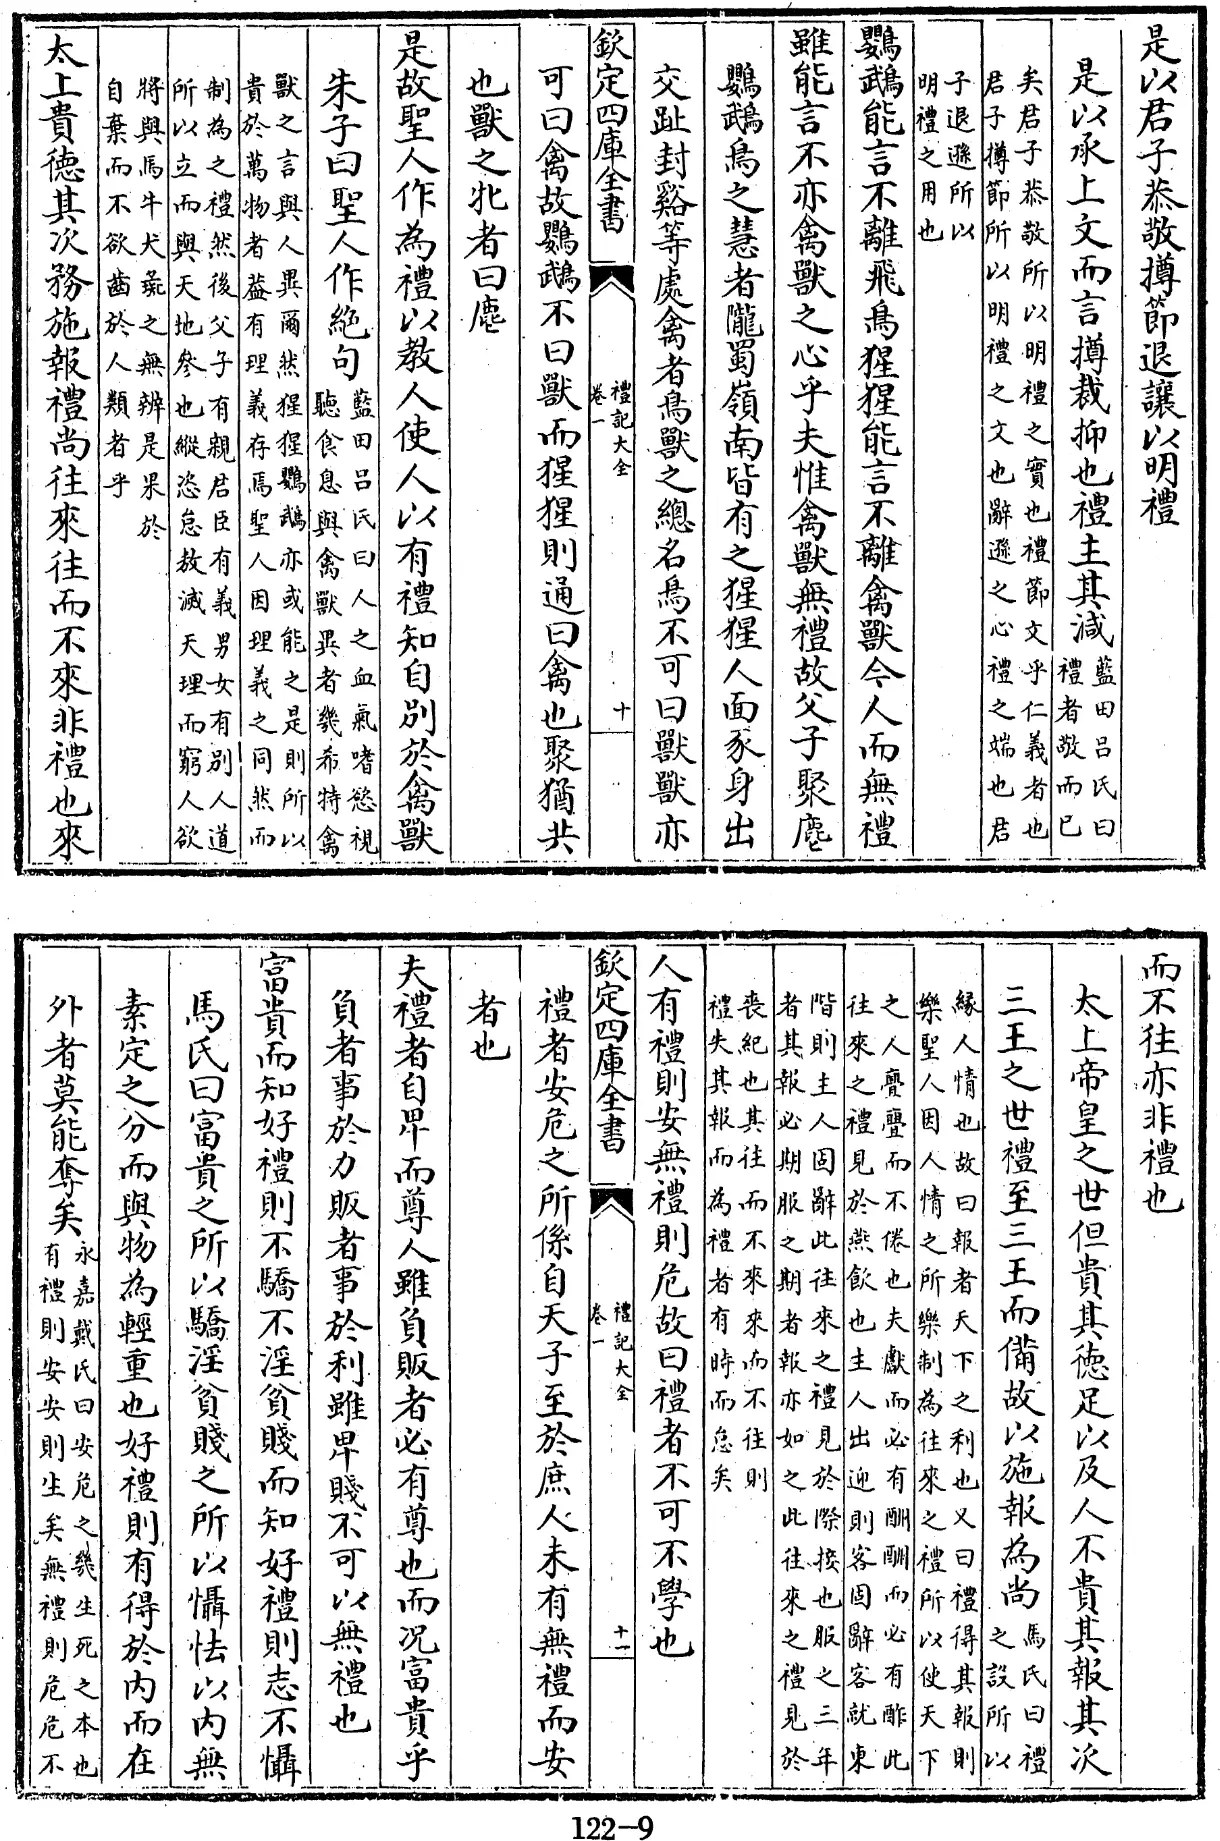 是以君子恭敬撙節退讓以明禮
是以承上文而言撙裁抑也禮主其減
藍田吕氏曰
禮者敬而已
矣君子恭敬所以明禮之實也禮節文乎仁義者也
君子撙節所以明禮之文也辭遜之心禮之端也君
子退遜所以
明禮之用也
鸚鵡能言不離飛鳥猩猩能言不離禽獸今人而無禮
雖能言不亦禽獸之心乎夫惟禽獸無禮故父子聚麀
鸚鵡鳥之慧者隴蜀嶺南皆有之猩猩人面豕身出
交趾封谿等處禽者鳥獸之總名鳥不可曰獸獸亦
欽定四庫全書
禮記大全
卷一
十
可曰禽故鸚鵡不曰獸而猩猩則通曰禽也聚猶共
也獸之牝者曰麀
是故聖人作為禮以教人使人以有禮知自別於禽獸
朱子曰聖人作絶句
藍田吕氏曰人之血氣嗜慾視
聽食息與禽獸異者幾希特禽
獸之言與人異爾然猩猩鸚鵡亦或能之是則所以
貴於萬物者葢有理義存焉聖人因理義之同然而
制為之禮然後父子有親君臣有義男女有別人道
所以立而與天地參也縱恣怠敖滅天理而窮人欲
將與馬牛犬彘之無辨是果於
自棄而不欲齒於人類者乎
太上貴德其次務施報禮尚往來往而不來非禮也來
而不往亦非禮也
太上帝皇之世但貴其德足以及人不貴其報其次
三王之世禮至三王而備故以施報為尚
馬氏曰禮
之設所以
緣人情也故曰報者天下之利也又曰禮得其報則
樂聖人因人情之所樂制為往來之禮所以使天下
之人亹亹而不倦也夫獻而必有酬酬而必有酢此
往來之禮見於燕飲也主人出迎則客固辭客就東
階則主人固辭此往來之禮見於際接也服之三年
者其報必期服之期者報亦如之此往來之禮見於
喪紀也其往而不來來而不往則
禮失其報而為禮者有時而怠矣
人有禮則安無禮則危故曰禮者不可不學也
欽定四庫全書
禮記大全
卷一
十一
禮者安危之所係自天子至於庶人未有無禮而安
者也
夫禮者自卑而尊人雖負販者必有尊也而况富貴乎
負者事於力販者事於利雖卑賤不可以無禮也
富貴而知好禮則不驕不淫貧賤而知好禮則志不懾
馬氏曰富貴之所以驕淫貧賤之所以懾怯以内無
素定之分而與物為輕重也好禮則有得於内而在
外者莫能奪矣
永嘉戴氏曰安危之幾生死之本也
有禮則安安則生矣無禮則危危不
122-9